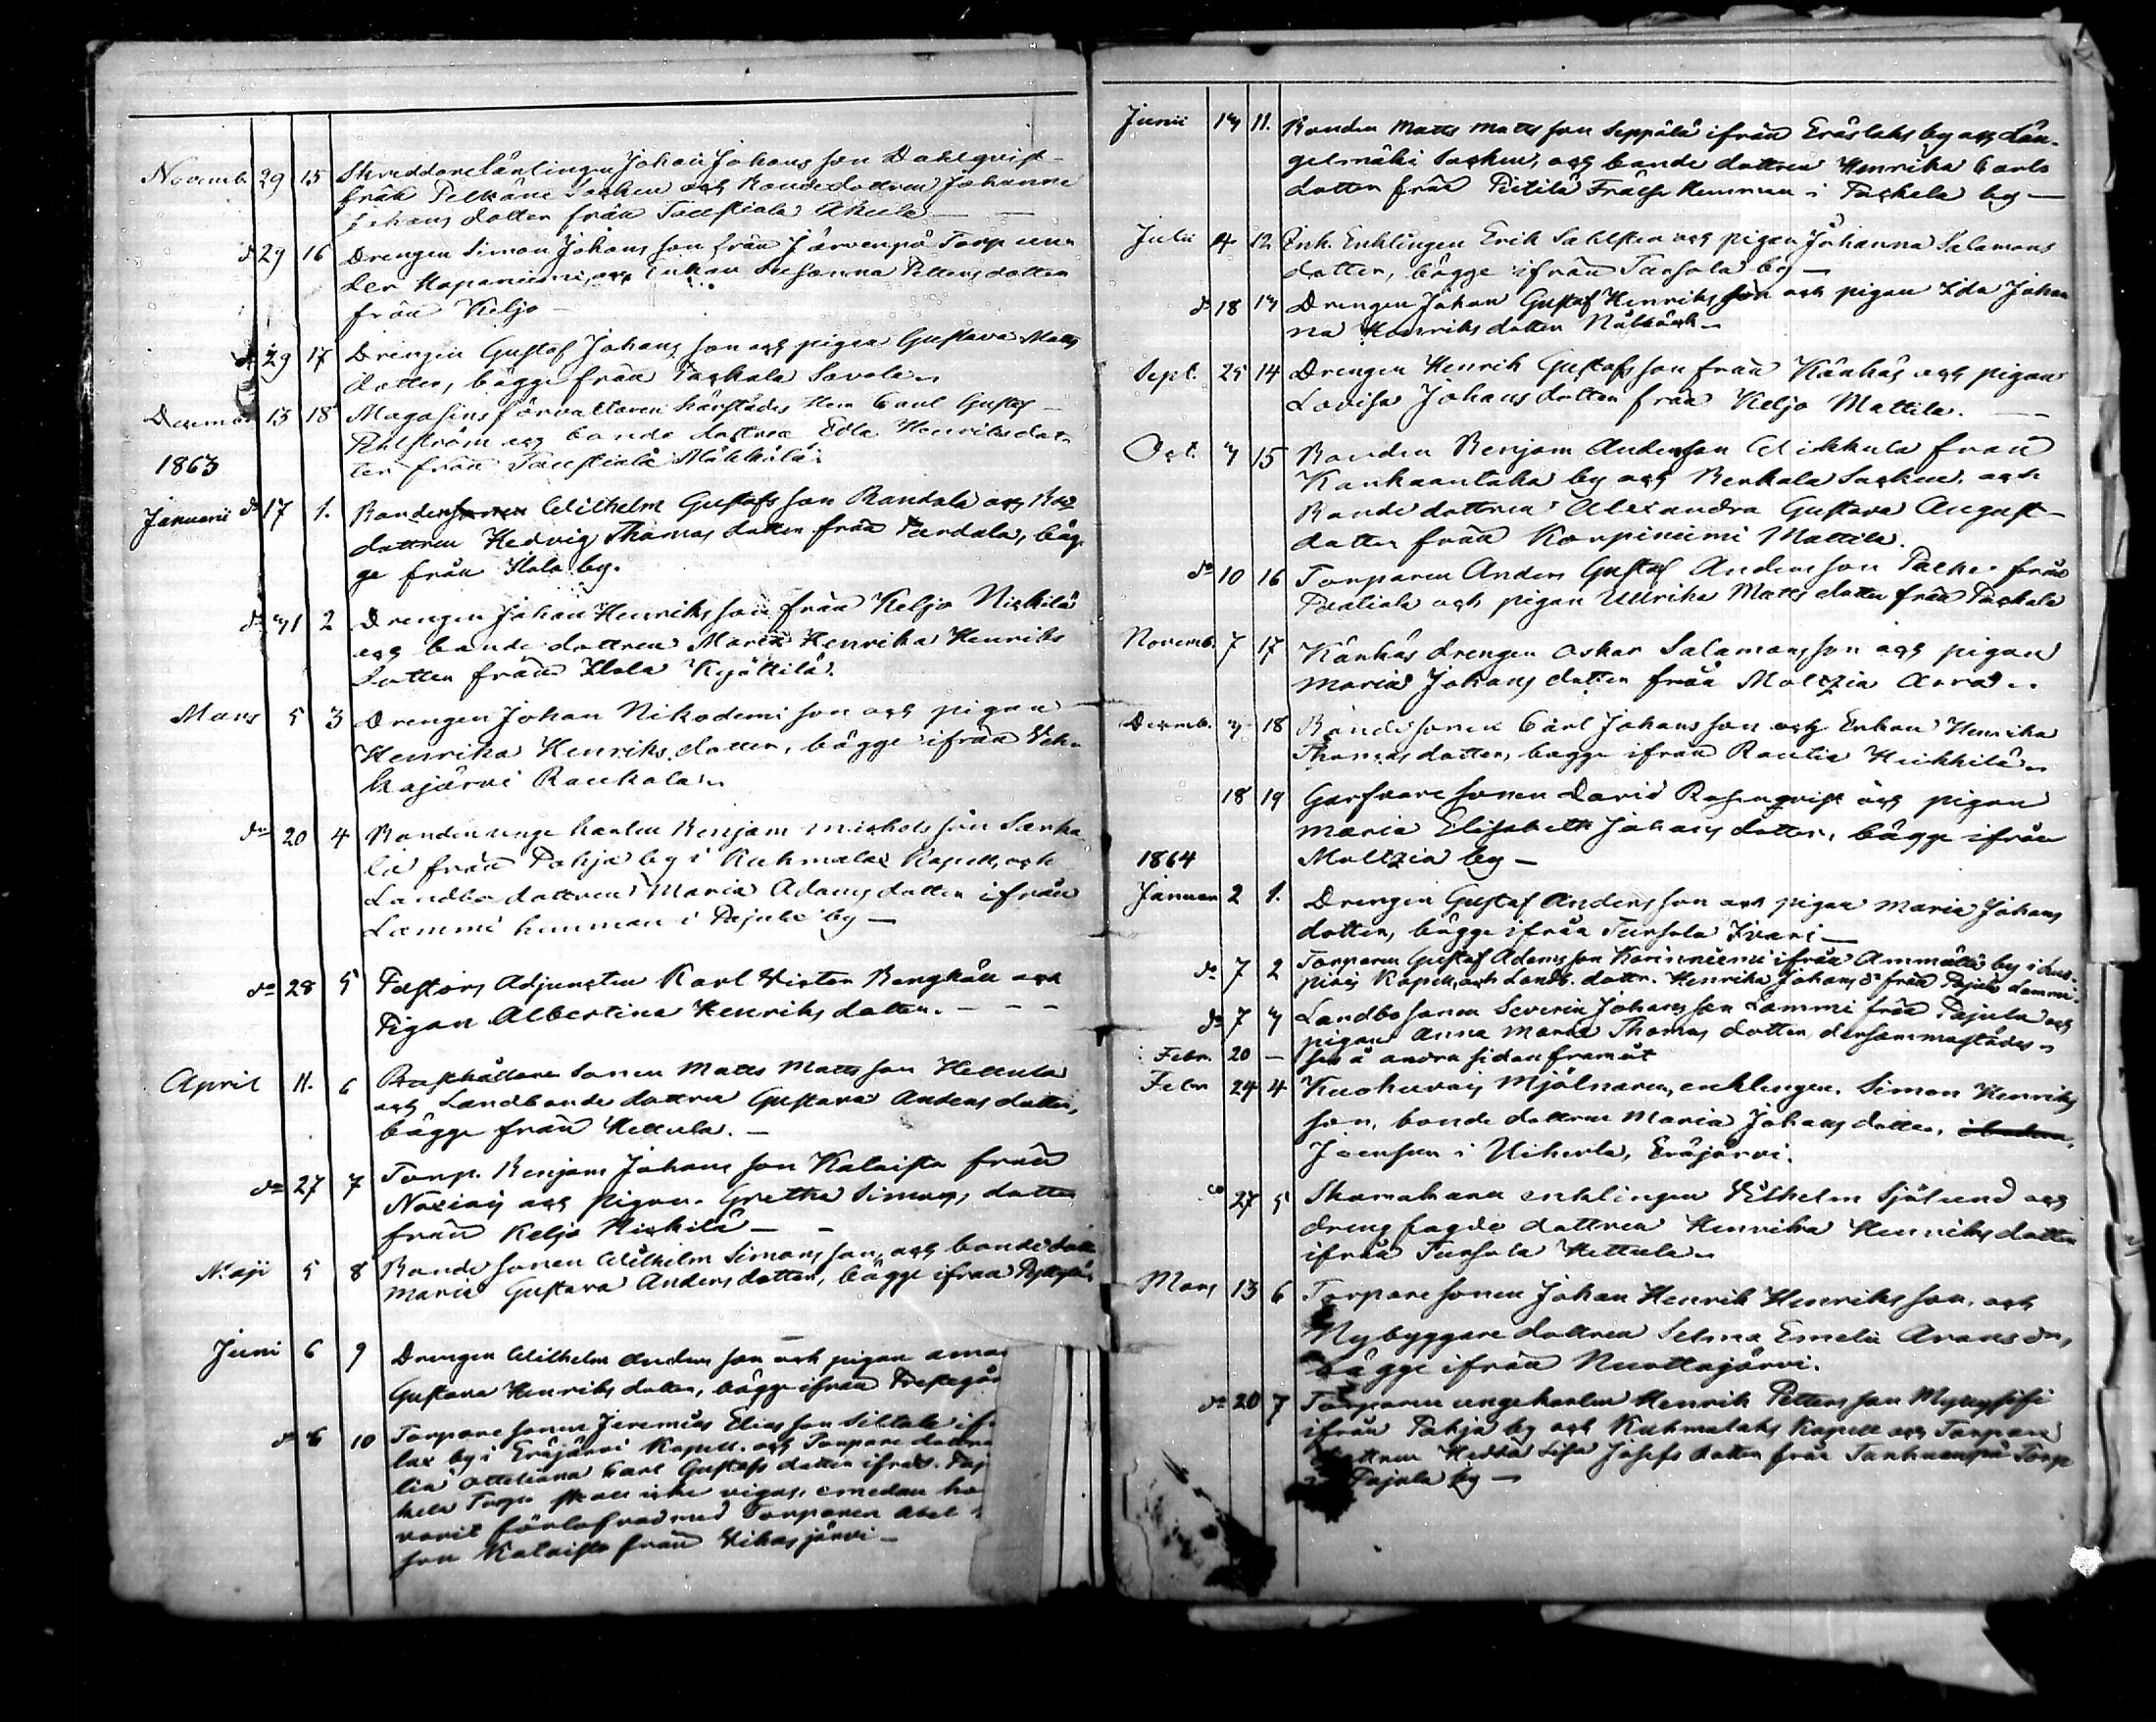 Novemb. 29 15 Skreddare Länlingen Johan Johansson Dahlqvist
från Pelkäne Socken och Bondedottren Johanna
Johansdotter från Taustiala Akula
do 29 16 Drengen Simon Johansson från Järvenpä Torp un
der Haponiemi, och Enkan Susanna Pettersdotter
från Keljo
do 29 17 Drengen Gustaf Johansson och pigan Gustava Matts
dotter, bägge från Packala Savola
Decemb. 13 18 Magasinsförvaltaren härstädes Herr Carl Gustaf
Ahlström och bonde dottren Edla Henriksdot
ter från Taustiala Mäkkälä
1863
Januarii do 17 1. Bonden Wilhelm Gustafsson Randala och Bon
dottren Hedvig Thomasdotter från Pardala, bäg
ge från Ilola by.
do 31 2 Drengen Johan Henriksson från Keljo Nickilä
och bonde dottren Maria Henrika Henriks
dotter från Ilola Kyöttilä.
Mars 5 3 Drengen Johan Nikodemison och pigan
Henrika Henriksdotter, bägge ifrån Veh
kajärvi Raukola
do 20 4 Bonden unge karlen Benjam Michelsson Sarka
la från Pohja by i Kuhmalax Kapell, och
Landbo dottren Maria Adamsdotter ifrån
Lammi hemman i Pajula by
do 28 5 Pastors Adjuncten Karl Victor Berghäll och
Pigan Albertina Henriksdotter.
April 11. 6 Rusthållare Sonen Matts Mattsson Hettula
och Landbonde dottren Gustava Andersdotter,
bägge från Hettula.
do 27 7 Torp. Benjam Johansson Kalaisto från
och Pigan Gretha Simonsdotter
från Keljo Nickilä
Maji 5 8 Bonde sonen Wilhelm Simonsson, och bonde dott
Maria Gustava Andersdotter, bägge ifrån
Juni 6 9 Drengen Wilhelm Andersson och pigan
Gustava Henriksdotter, bägge ifrån Prestegår
do 6 10 Torpare sonen Jeremias Eliasson Siltala if
lax by i Eräjärvi Kapell. och Torpare dottre
lia Ottiliana Carl Gustafsdotter ifrån
kela Torp skall icke vigas, emedan ho
varit förlofvad med Torparen Abel
son Kalaisto från Vihasjärvi
Junii 13 11. Bonden Matts Mattsson Seppälä ifrån Eräslaks by och Län
gelmäki Socken, och bonde dottren Henrika Carls
dotter från Pietilä Frälse Hemman i Packala by
Julii 4 12 Enk. Enklingen Erik Sahlsten och pigan Johanna Salomons
dotter, bägge ifrån Tursola by
do 18 13 Drengen Johan Gustaf Henriksson och pigan Ida Johan
na Henriksdotter
Sept. 25 14 Drengen Henrik Gustafsson från Känhäs och pigan
Lovisa Johansdotter från Keljo Mattila.
Oct. 3 15 Bonden Benjam Andersson Wikkula från
Kankaantaka by och Berkala Socken, och
Bonde dottren Alexandra Gustava August
dotter från Korpiniemi Mattila.
do 10 16 Torparen Anders Gustaf Andersson Packe från
och pigan Ulrika Mattsdotter från Packala
Novemb. 7 17 Känhäs drengen Oskar Salamonsson och pigan
Maria Johansdotter från Moltzia
Decemb. 3 18 Bonde sonen Carl Johansson och Enkan Henrika
Thomasdotter, bägge ifrån Rautia Heikkilä
18 19 Garfvare sonen David Rosenqvist och pigan
Maria Elisabeth Johansdotter, bägge ifrån
1864 Moltzia by
Januari 2 1. Drengen Gustaf Andersson och pigan Maria Johans
dotter, bägge ifrån Tursola Ivari
do 7 2 Torparen Gustaf Adamsson Kärinniemi ifrån Ammälä by i Luo
piois Kapell, och Landb. dottr. Henrika Johansd:r från Pajula Lammi
do 7 3 Landbo sonen Severin Johansson Lammi från Pajula och
pigan Anna Maria Thomas dotter, dersammastädes
Febr. 20 — se å andra sidan framåt
Febr 24 4 Kuohuvais Mjölnaren, enklingen Simon Henriks
son, bonde dottren Maria Johansdotter,
Joensuu i Uiherla, Eräjärvi.
do 27 5 Skomakaren enklingen Vilhelm Sjölund och
drengfogde dottren Henrika Henriksdotter
ifrån Tursola Hettula
Mars 13 6 Torpare sonen Johan Henrik Henriksson och
Nybyggare dottren Selma Emelie
bägge ifrån Nuottajärvi.
do 20 7 Torparen ungekarlen Henrik Pettersson
ifrån Pohja by och Kuhmalahs Kapell och Torpare
dottren Hedda Lisa Josefsdotter från Tanhuanpä Torp
Pajula by